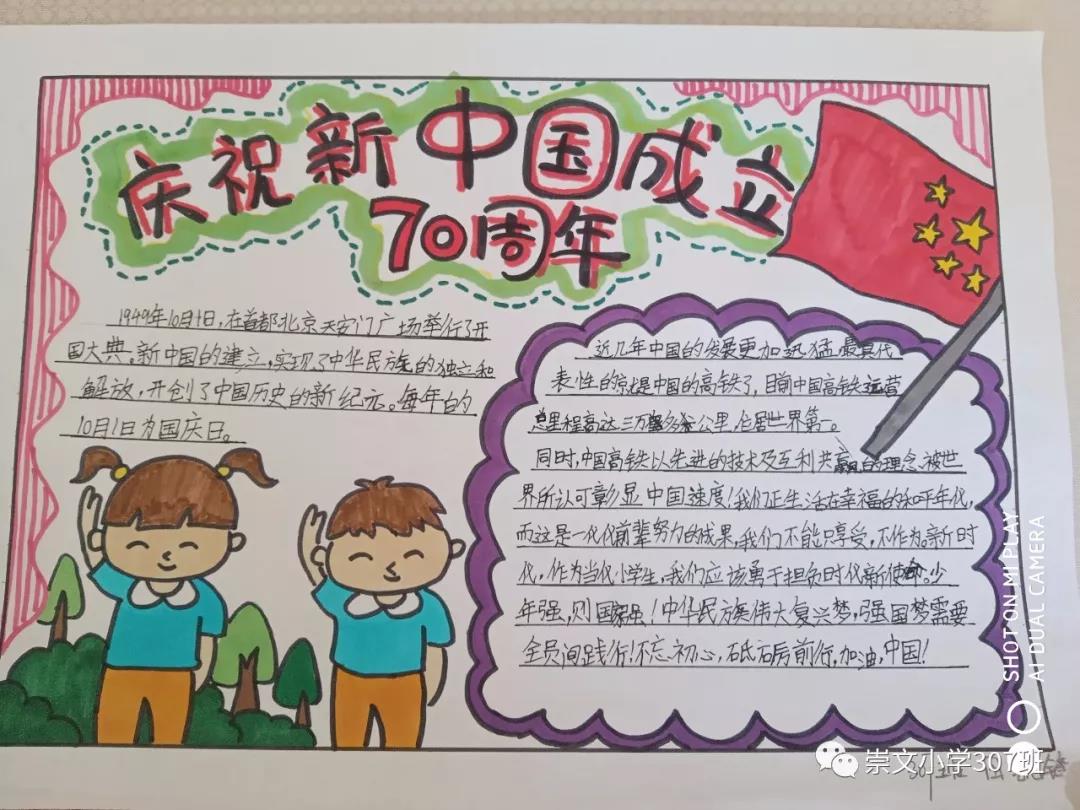 庆祝新中国成立
70周年
1949年10月1日,在首都北京天安门广场举行了开
国大典,新中国的建立,实现了中华民族的独立和
解放,开创了中国历史的新纪元。每年的
10月1日为国庆日。
近几年中国的发展更加迅猛,最具代
表性的就是中国的高铁了,目前中国高铁运营
总里程高达三万多公里,位居世界第一。
同时,中国高铁以先进的技术及互利共赢的理念,被世
界所认可彰显中国速度!我们正生活在幸福的和平年代,
而这是一代代前辈努力的成果,我们不能只享受,不作为。新时
代,作为当代小学生,我们应该勇于担负时代新使命。少
年强,则国家强!中华民族伟大复兴梦,强国梦需要
全员间践行!不忘初心,砥砺前行,加油,中国!
SHOT ON MI PLAY
AI DUAL CAMERA
崇文小学307班